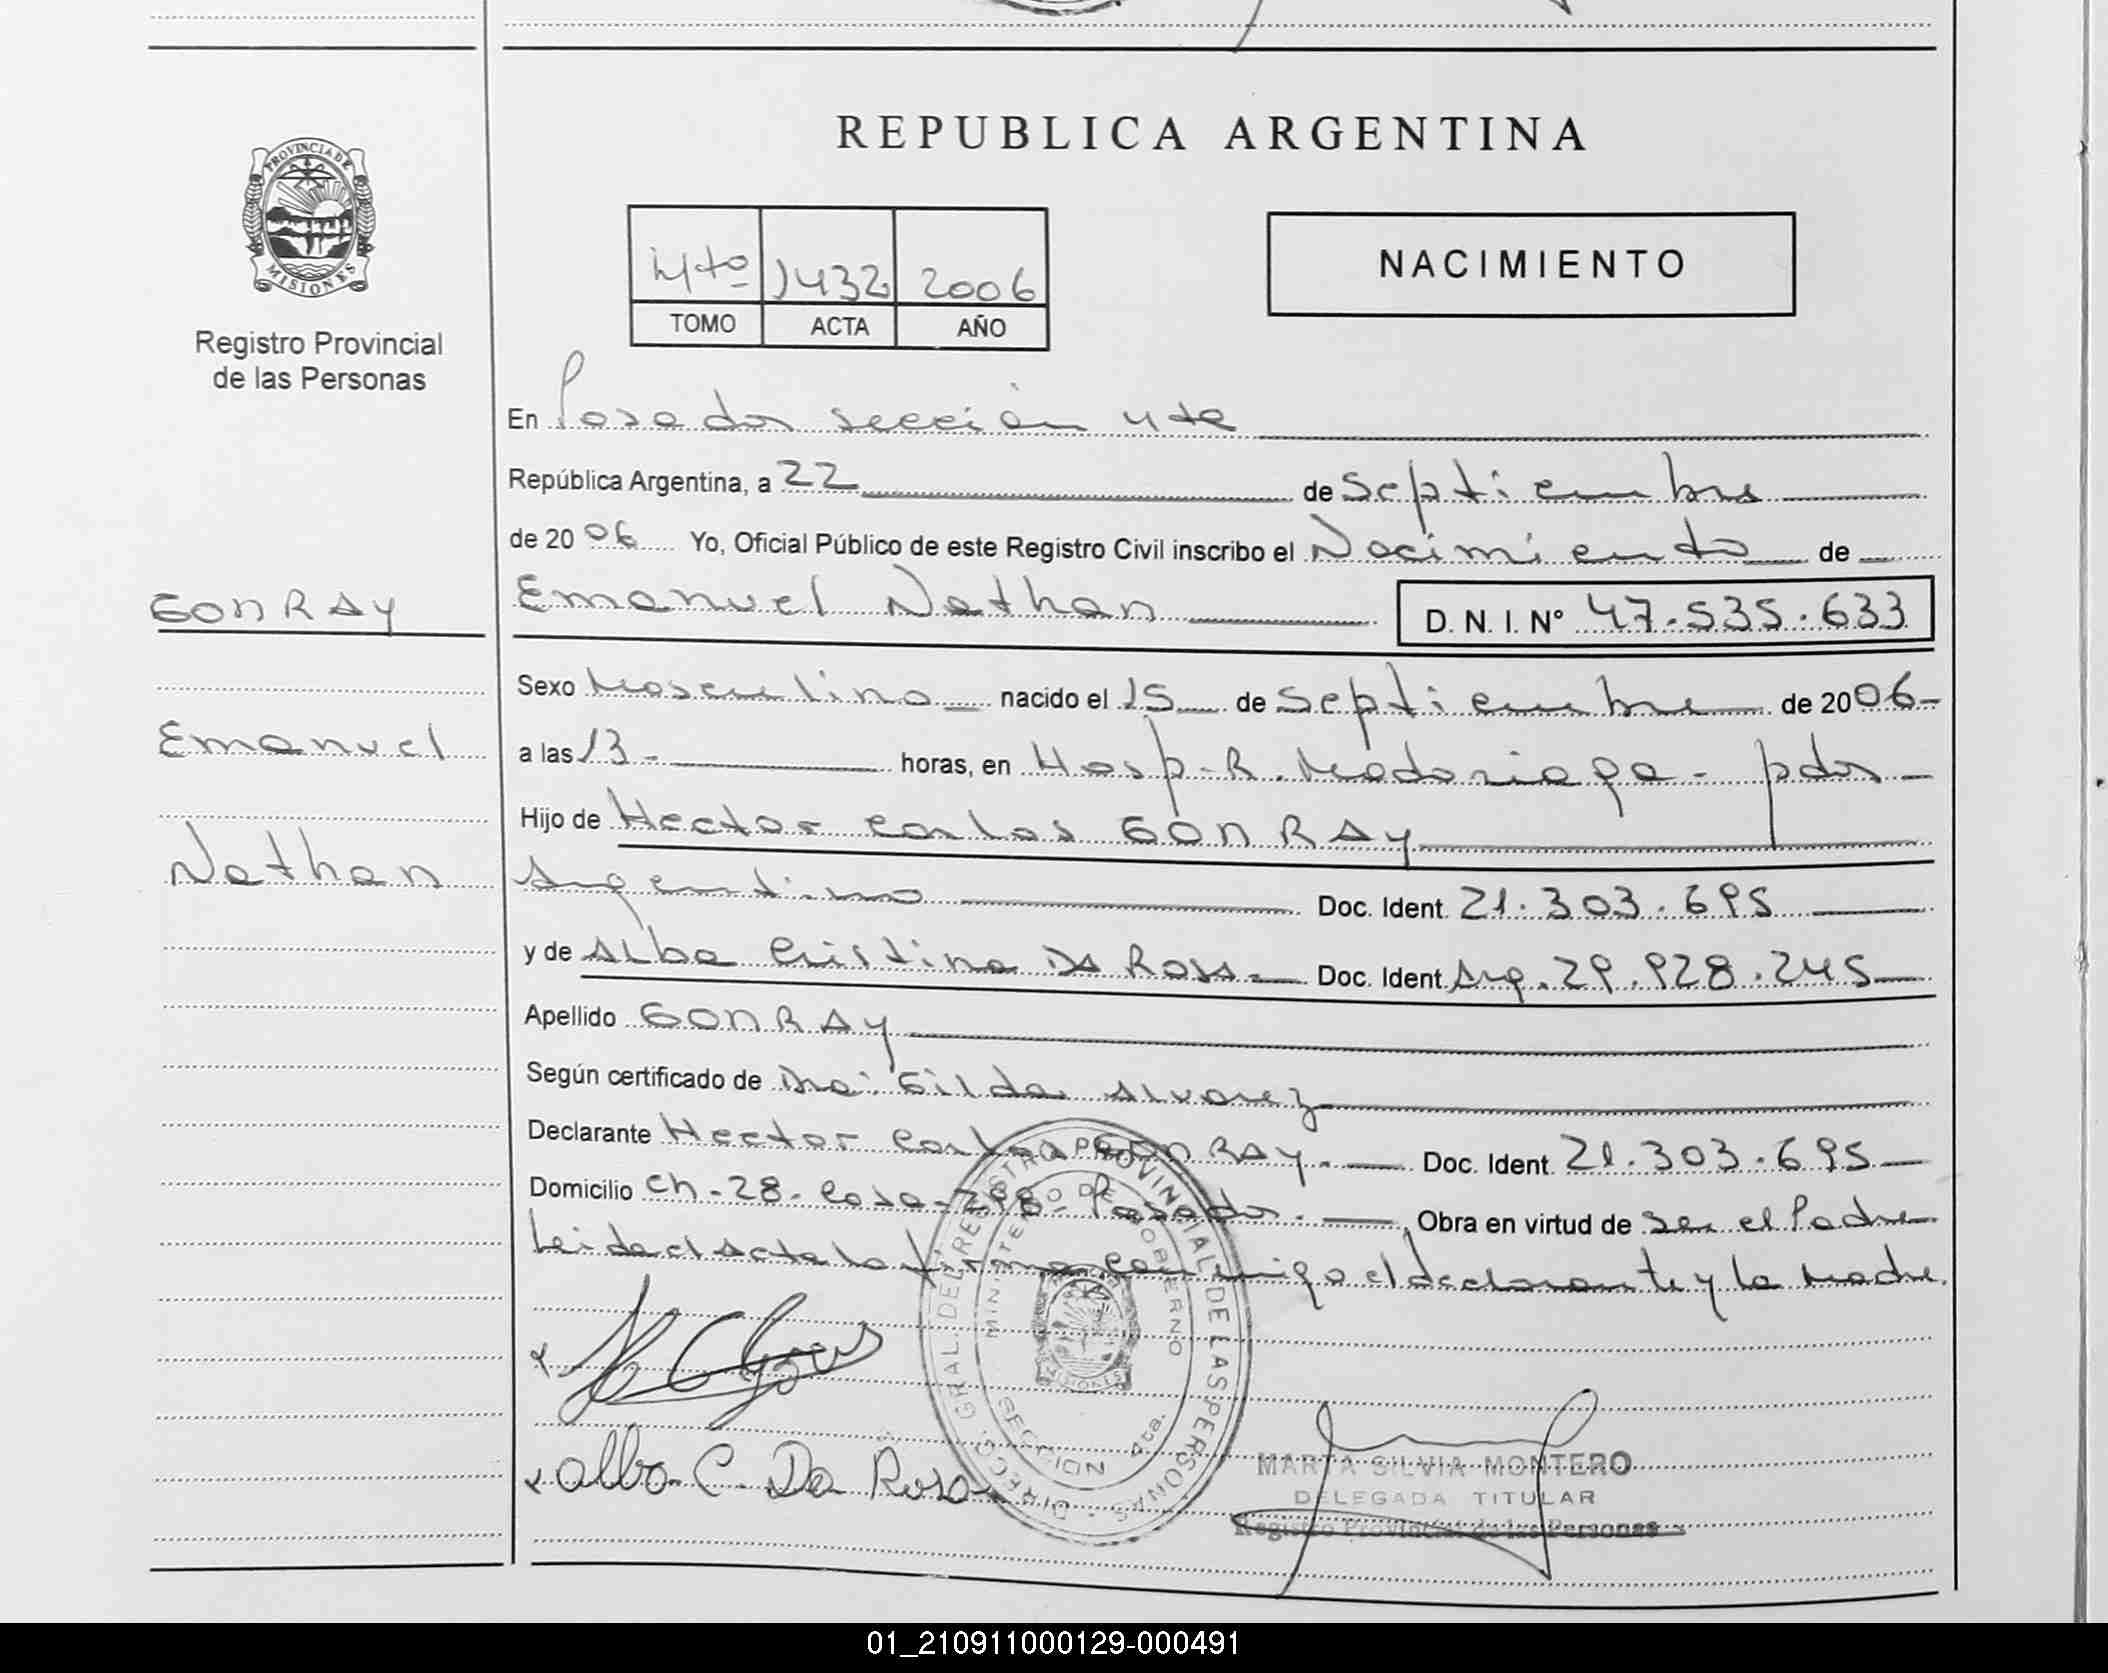 REPUBLICA ARGENTINA
PROVINCIA DE
MISIONES
Registro Provincial
de las Personas
4to 1432 2006
TOMO ACTA AÑO
NACIMIENTO
En Posadas sección 4ta
República Argentina, a 22 de Septiembre
de 2006 Yo, Oficial Público de este Registro Civil inscribo el Nacimiento de
GONRAY
Emanuel Nathan D.N.I. Nº 47.535.633
Sexo Masculino nacido el 15 de Septiembre de 2006-
Emanuel
a las 13- horas, en Hosp. R. Madariaga - pdas
Hijo de Hector Carlos GONRAY
Nathan
Argentino Doc. Ident. 21.303.695
y de Alba Cristina DA ROSA Doc. Ident. Arg. 29.928.245
Apellido GONRAY
Según certificado de Dra: Gilda Alvarez
Declarante Hector Carlos GONRAY. Doc. Ident. 21.303.695
Domicilio Ch-28-Casa-298-Posadas. Obra en virtud de Ser el Padre
Leida el Acta la firma conmigo el declarante y la Madre.
DIRECC. GRAL. DEL REGISTRO PROVINCIAL DE LAS PERSONAS
MINISTERIO DE GOBIERNO
MISIONES
SECCION 4ta.
Alba C. Da Rosa
MARTA SILVIA MONTERO
DELEGADA TITULAR
Registro Provincial de las Personas
01_210911000129-000491